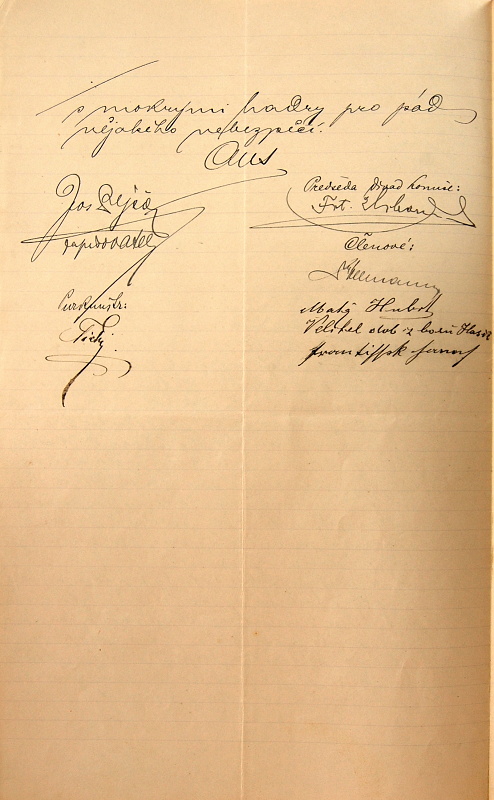 s mokrými hadry pro pád
nějakého nebezpečí.
Aus
Jos
zapisovatel
Purkmistr:
Tichý
Předseda divad komise:
Frt. Urban
Členové:
Matěj Hubert
Velitel dob. z borů Hasič
Frantissek